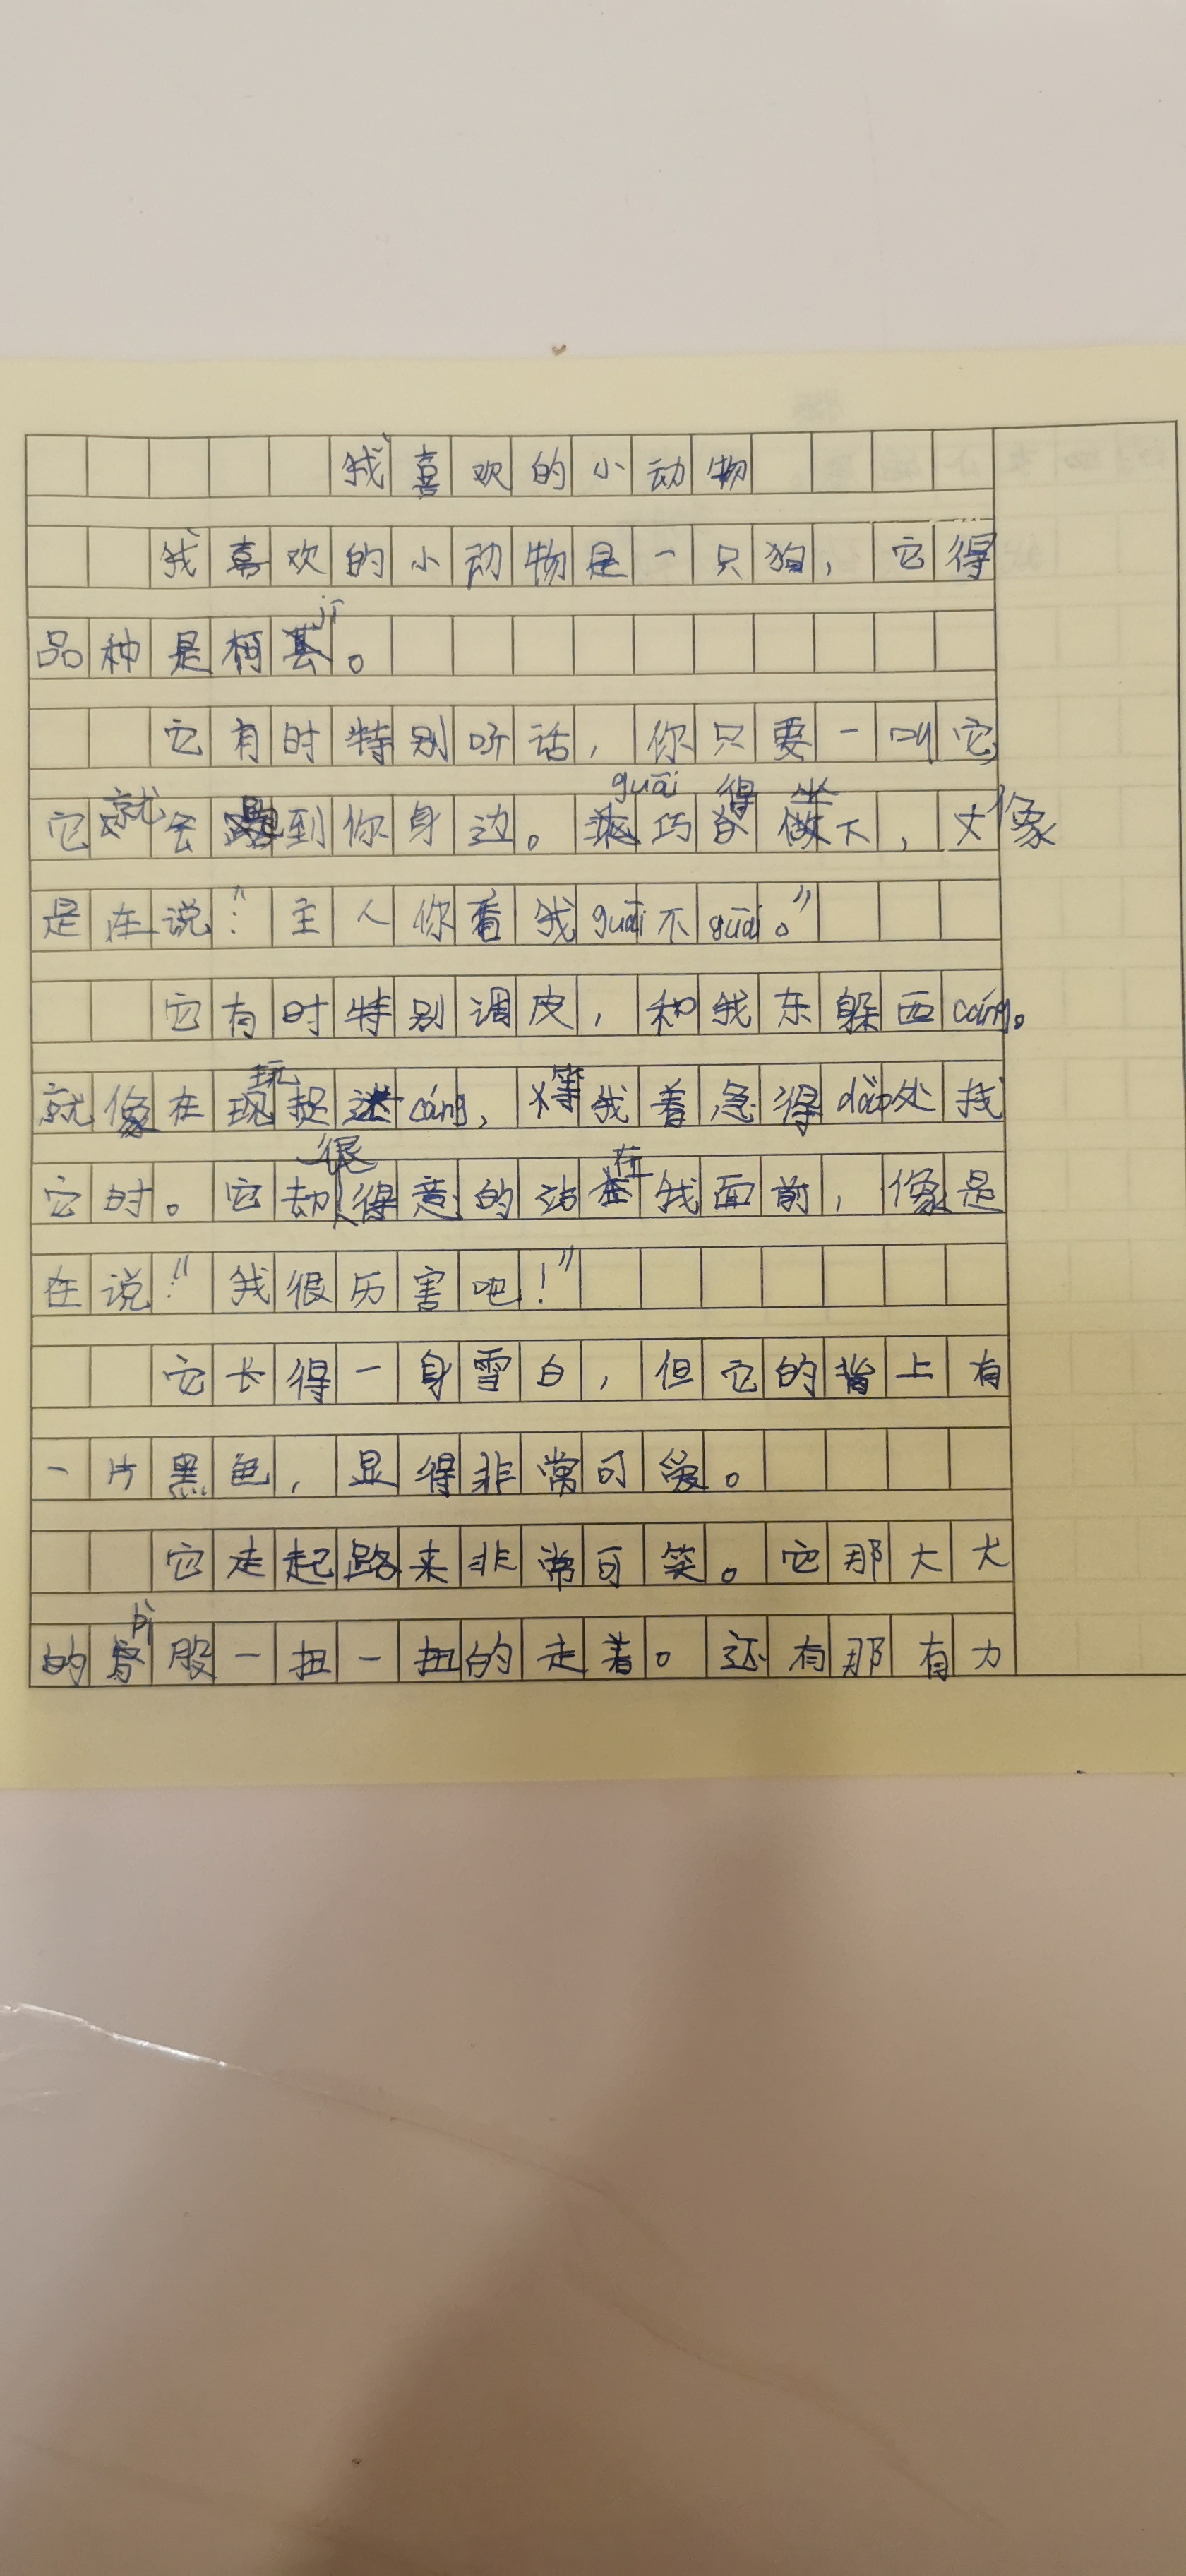 我喜欢的小动物
我喜欢的小动物是一只狗，它得
品种是柯基jī。
它有时特别听话，你只要一叫它，
它就会跑到你身边。乖guāi巧得坐下，像
是在说：“主人你看我guāi不guāi。”
它有时特别调皮，和我东躲西cáng。
就像在玩捉迷cáng，等我着急得dào处找
它时。它却很得意的站在我面前，像是
在说：“我很历害吧！”
它长得一身雪白，但它的背上有
一片黑色，显得非常可爱。
它走起路来非常可笑。它那大大
的pì股一扭一扭的走着。还有那有力